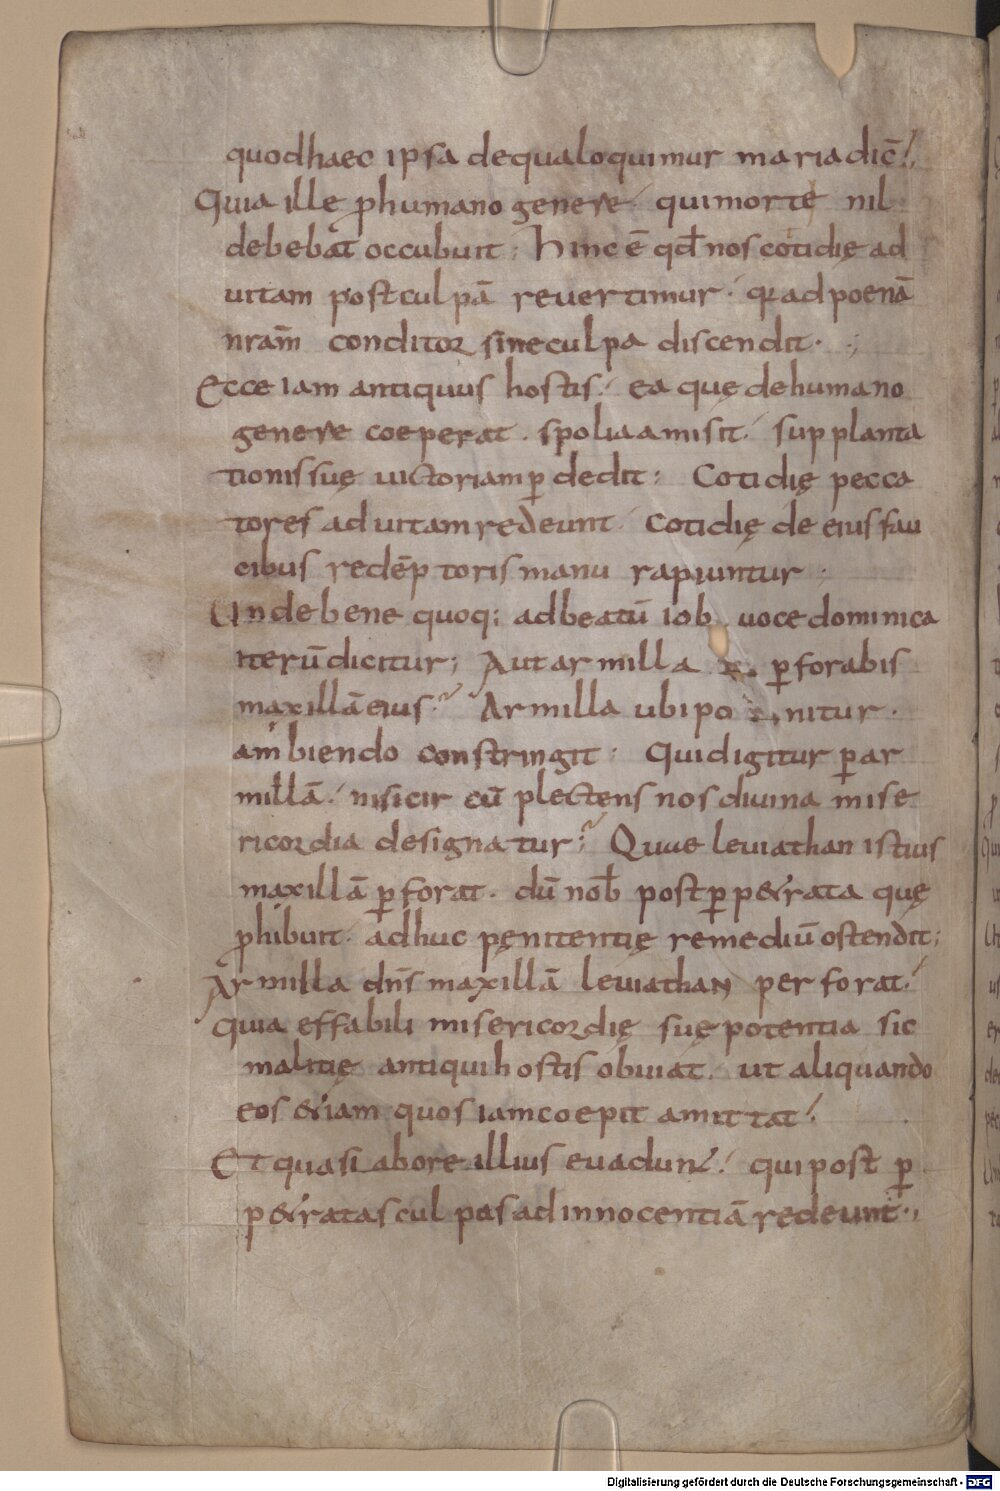 quod haec ipsa de qua loquimur maria dic̄;
Quia ille p humano genere; qui morte nil
debebat occubuit; Hinc ē qđ nos cotidię ad
uitam post culpā reuertimur; q̄a ad poenā
nrām conditor sine culpa discendit.;
Ecce iam antiquus hostis; ea quę de humano
genere coeperat. spolia amisit; supplanta
tionis suę uictoriam p̱dedit; Cotidię pecca
tores ad uitam redeunt; Cotidię de eius fau
cibus redēptoris manu rapiuntur;
Unde bene quoq; ad beatū iob uoce dominica
iterū dicitur; Aut armilla p̱forabis
maxillā eius; Armilla ubi ponitur.
ambiendo constringit; Quid igitur p̱ ar
millā; nisi circūplectens nos diuina mise
ricordia designatur; Quae leuiathan istius
maxillā p̱forat. dū nob̄ post p̱p&rata quę
phibuit. adhuc pęnitentię remediū ostendit;
Armilla dn̄s maxillā leuiathan perforat;
quia effabili misericordię suę potentia sic
malitię antiqui hostis obuiat. ut aliquando
eos &iam quos iam coepit amittat;
Et quasi ab ore illius eadunt; qui post p̱
p&ratas culpas ad innocentiā redeunt.;
Digitalisierung gefördert durch die Deutsche Forschungsgemeinschaft - DFG